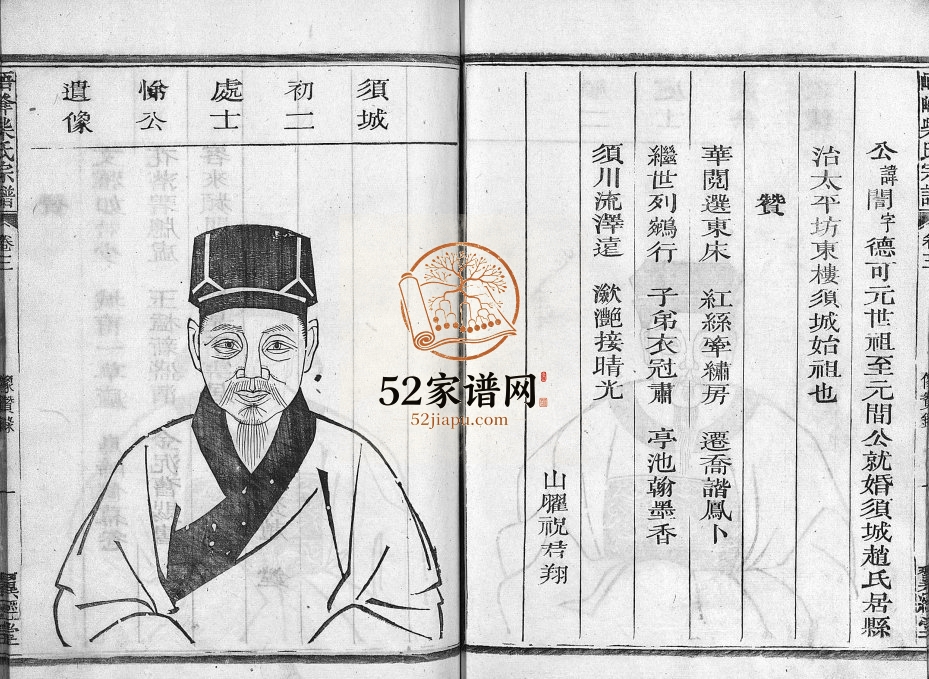 公諱誾字德可元世祖至元間公就婚須城趙氏居縣
治太平坊東樓須城始祖也
贊
華閥選東床 紅絲牽繡房 遷喬諧鳳卜
繼世列鵷行 子弟衣冠肅 亭池翰墨香
須川流澤遠 瀲灧接晴光
山曜祝君翔
須城
初二
處士
公
遺像
柴氏宗譜
卷三
像贊錄
一
52家谱网
52jiapu.com